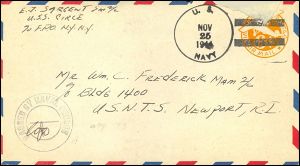 E.J. SARGENT SM 2/c
U.S.S. CIRCE
% F.P.O. N.Y. N.Y.
U. S.
NOV
25
NAVY
Mr. Wm. C. Frederick MaM 2/c
Bldg 1400
U.S.N.T.S. Newport, R.I.
PASSED BY NAVAL